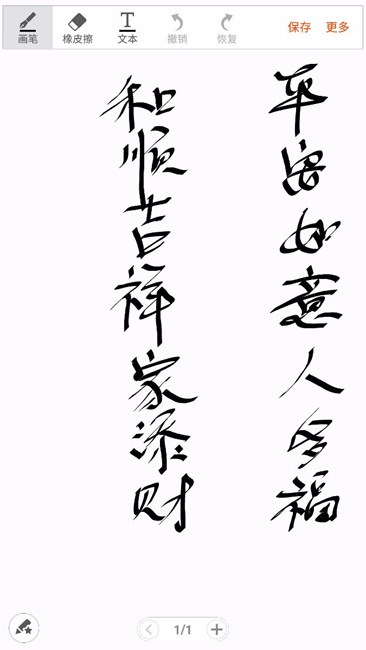 画笔 橡皮擦 文本 撤销 恢复 保存 更多
平安如意人多福
和顺吉祥家添财
1/1